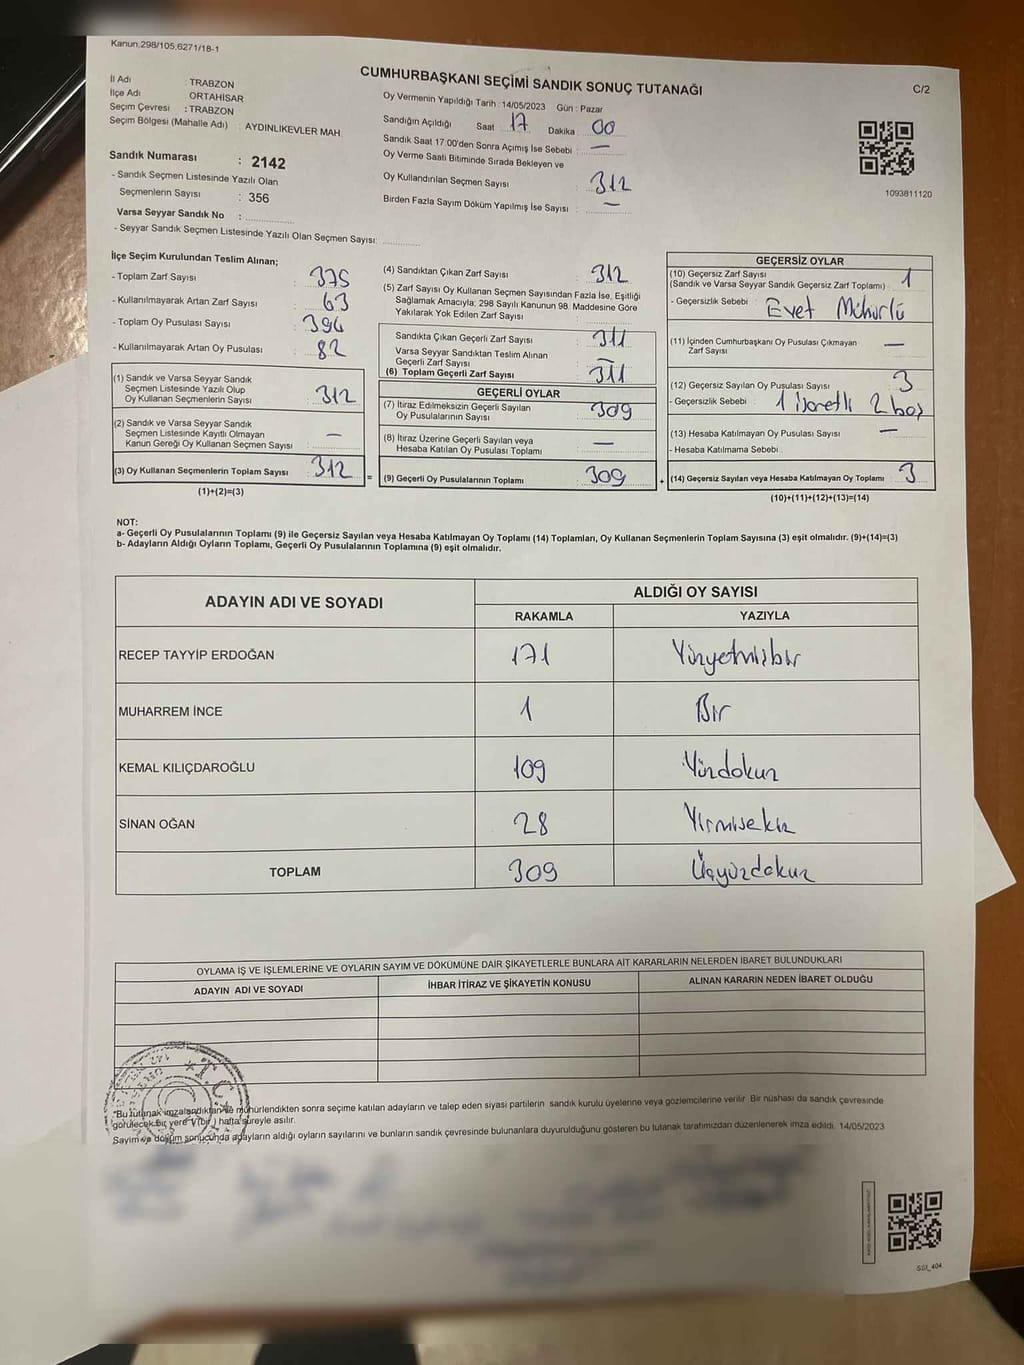 Kanun.298/105,6271/18-1
CUMHURBAŞKANI SEÇİMİ SANDIK SONUÇ TUTANAĞI
C/2
İl Adı : TRABZON
İlçe Adı ORTAHİSAR
Seçim Çevresi : TRABZON
Seçim Bölgesi (Mahalle Adı) : AYDINLIKEVLER MAH.
Sandık Numarası : 2142
- Sandık Seçmen Listesinde Yazılı Olan
Seçmenlerin Sayısı : 356
Varsa Seyyar Sandık No :
- Seyyar Sandık Seçmen Listesinde Yazılı Olan Seçmen Sayısı:
Oy Vermenin Yapıldığı Tarih : 14/05/2023 Gün : Pazar
Sandığın Açıldığı Saat 17 Dakika 00
Sandık Saat 17:00'den Sonra Açımış İse Sebebi : —
Oy Verme Saati Bitiminde Sırada Bekleyen ve
Oy Kullandırılan Seçmen Sayısı : 312
Birden Fazla Sayım Döküm Yapılmış İse Sayısı : —
1093811120
İlçe Seçim Kurulundan Teslim Alınan;
- Toplam Zarf Sayısı : 375
- Kullanılmayarak Artan Zarf Sayısı : 63
- Toplam Oy Pusulası Sayısı : 394
- Kullanılmayarak Artan Oy Pusulası : 82
(1) Sandık ve Varsa Seyyar Sandık
Seçmen Listesinde Yazılı Olup
Oy Kullanan Seçmenlerin Sayısı : 312
(2) Sandık ve Varsa Seyyar Sandık
Seçmen Listesinde Kayıtlı Olmayan
Kanun Gereği Oy Kullanan Seçmen Sayısı : —
(3) Oy Kullanan Seçmenlerin Toplam Sayısı : 312
(1)+(2)=(3)
=
(4) Sandıktan Çıkan Zarf Sayısı : 312
(5) Zarf Sayısı Oy Kullanan Seçmen Sayısından Fazla İse, Eşitliği
Sağlamak Amacıyla; 298 Sayılı Kanunun 98. Maddesine Göre
Yakılarak Yok Edilen Zarf Sayısı :
Sandıkta Çıkan Geçerli Zarf Sayısı : 311
Varsa Seyyar Sandıktan Teslim Alınan
Geçerli Zarf Sayısı : —
(6) Toplam Geçerli Zarf Sayısı : 311
GEÇERLİ OYLAR
(7) İtiraz Edilmeksizin Geçerli Sayılan
Oy Pusulalarının Sayısı : 309
(8) İtiraz Üzerine Geçerli Sayılan veya
Hesaba Katılan Oy Pusulası Toplamı : —
(9) Geçerli Oy Pusulalarının Toplamı : 309
+
GEÇERSİZ OYLAR
(10) Geçersiz Zarf Sayısı
(Sandık ve Varsa Seyyar Sandık Geçersiz Zarf Toplamı) : 1
- Geçersizlik Sebebi : Evet Mühürlü
(11) İçinden Cumhurbaşkanı Oy Pusulası Çıkmayan
Zarf Sayısı : —
(12) Geçersiz Sayılan Oy Pusulası Sayısı : 3
- Geçersizlik Sebebi : 1 işaretli 2 boş
(13) Hesaba Katılmayan Oy Pusulası Sayısı : —
- Hesaba Katılmama Sebebi :
(14) Geçersiz Sayılan veya Hesaba Katılmayan Oy Toplamı : 3
(10)+(11)+(12)+(13)=(14)
NOT:
a- Geçerli Oy Pusulalarının Toplamı (9) ile Geçersiz Sayılan veya Hesaba Katılmayan Oy Toplamı (14) Toplamları, Oy Kullanan Seçmenlerin Toplam Sayısına (3) eşit olmalıdır. (9)+(14)=(3)
b- Adayların Aldığı Oyların Toplamı, Geçerli Oy Pusulalarının Toplamına (9) eşit olmalıdır.
ADAYIN ADI VE SOYADI
ALDIĞI OY SAYISI
RAKAMLA YAZIYLA
RECEP TAYYİP ERDOĞAN 171 Yüzyetmişbir
MUHARREM İNCE 1 Bir
KEMAL KILIÇDAROĞLU 109 Yüzdokuz
SİNAN OĞAN 28 Yirmisekiz
TOPLAM 309 Üçyüzdokuz
OYLAMA İŞ VE İŞLEMLERİNE VE OYLARIN SAYIM VE DÖKÜMÜNE DAİR ŞİKAYETLERLE BUNLARA AİT KARARLARIN NELERDEN İBARET BULUNDUKLARI
ADAYIN ADI VE SOYADI İHBAR İTİRAZ VE ŞİKAYETİN KONUSU ALINAN KARARIN NEDEN İBARET OLDUĞU
T.C.
"Bu tutanak imzalandıktan ve mühürlendikten sonra seçime katılan adayların ve talep eden siyasi partilerin sandık kurulu üyelerine veya gözlemcilerine verilir. Bir nüshası da sandık çevresinde
görülecek bir yere 1 (bir) hafta süreyle asılır.
Sayım ve döküm sonucunda adayların aldığı oyların sayılarını ve bunların sandık çevresinde bulunanlara duyurulduğunu gösteren bu tutanak tarafımızdan düzenlenerek imza edildi. 14/05/2023
SSI_404